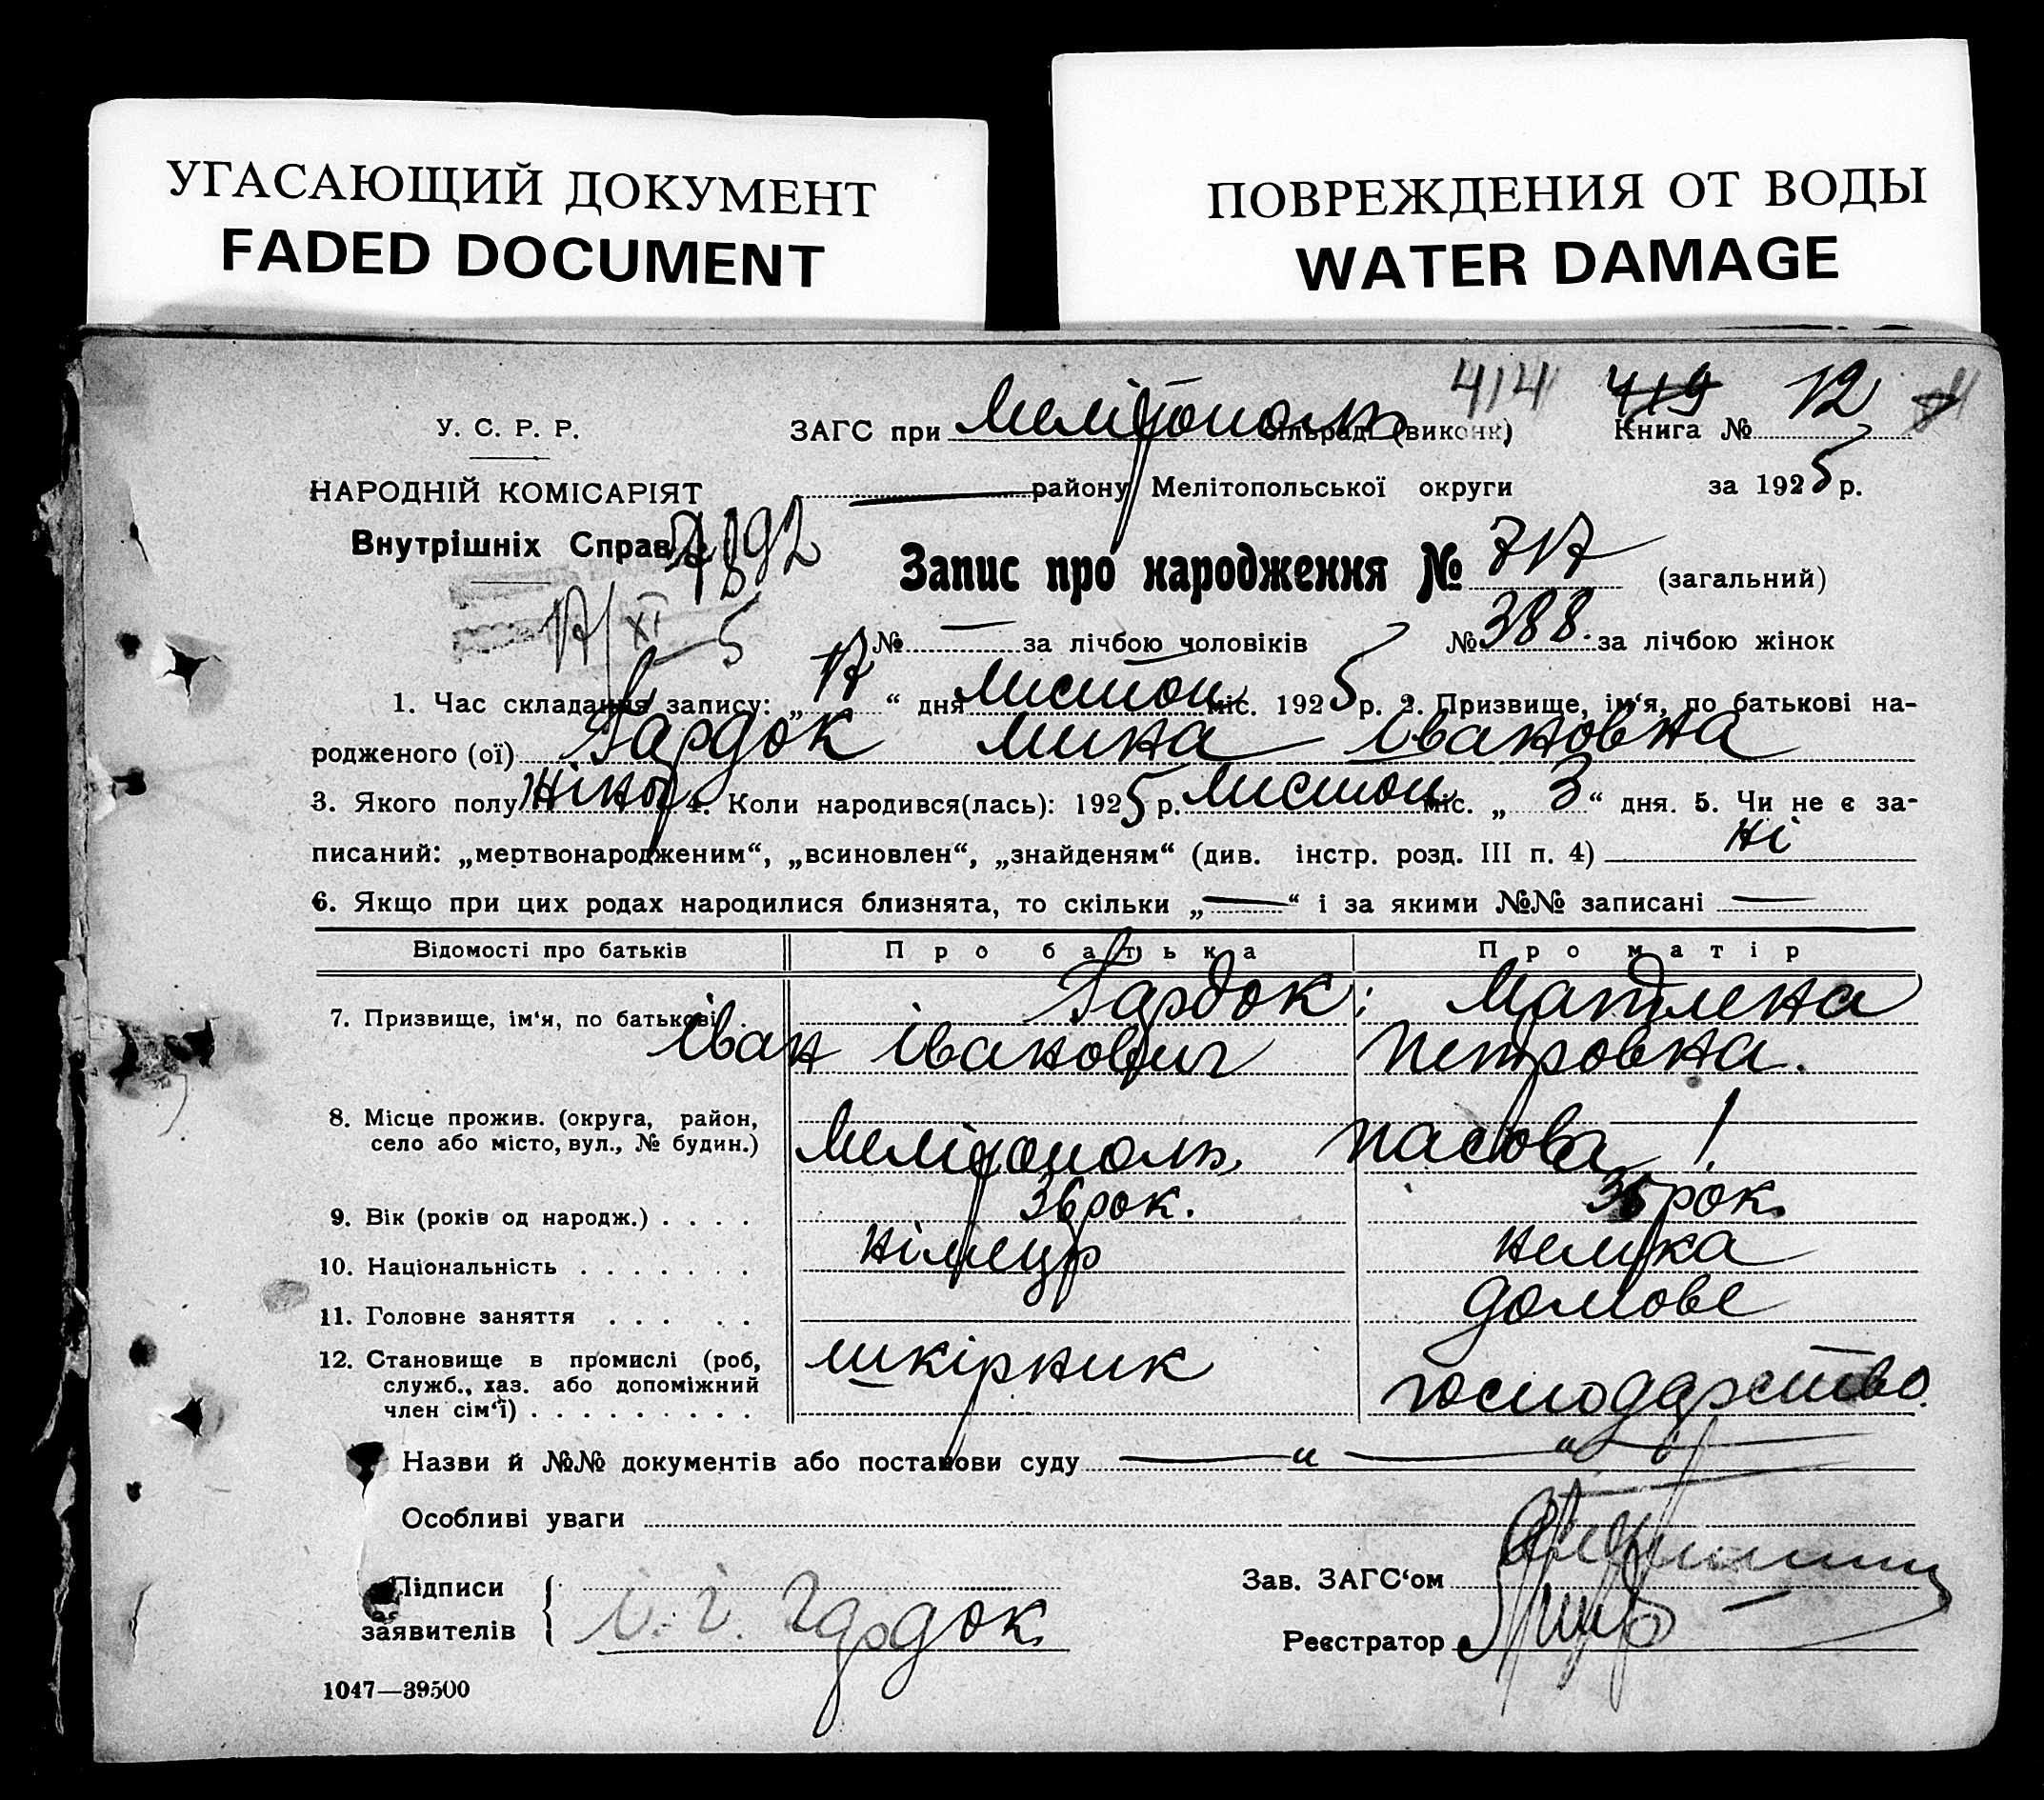 УГАСАЮЩИЙ ДОКУМЕНТ
FADED DOCUMENT
ПОВРЕЖДЕНИЯ ОТ ВОДЫ
WATER DAMAGE
414 419 12
У. С. Р. Р. ЗАГС при Мелітополь сільраді (виконк) Книга №
НАРОДНІЙ КОМІСАРІЯТ району Мелітопольської округи за 1925 р.
Внутрішніх Справ 7892
Запис про народження № 717 (загальний)
17/XI 5
№ — за лічбою чоловіків № 388. за лічбою жінок
1. Час складання запису: „17“ дня листоп міс. 1925 р. 2. Призвище, ім‘я, по батькові на-
родженого (ої) Гардок Мина Івановна
3. Якого полу жіноч. 4. Коли народився(лась): 1925 р. листоп міс. „3“ дня. 5. Чи не є за-
писаний: „мертвонародженим“, „всиновлен“, „знайденям“ (див. інстр. розд. III п. 4) ні
6. Якщо при цих родах народилися близнята, то скільки „—“ і за якими №№ записані —
Відомості про батьків Про батька Про матір
7. Призвище, ім‘я, по батькові Гардок: Матлена
Іван Іванович Петровна.
8. Місце прожив. (округа, район,
село або місто, вул., № будин.) Мелітополь
9. Вік (років од народж.) . . . . 36 рок. 35 рок.
10. Національність . . . . . . . німець немка
11. Головне заняття . . . . . домове
12. Становище в промислі (роб, шкірник господарство.
служб., хаз. або допоміжний
член сім‘ї) . . . . . . . . .
Назви й №№ документів або постанови суду — „ — „
Особливі уваги
Підписи
заявителів І. І. Гардок
Зав. ЗАГС‘ом
Реєстратор
1047—39500